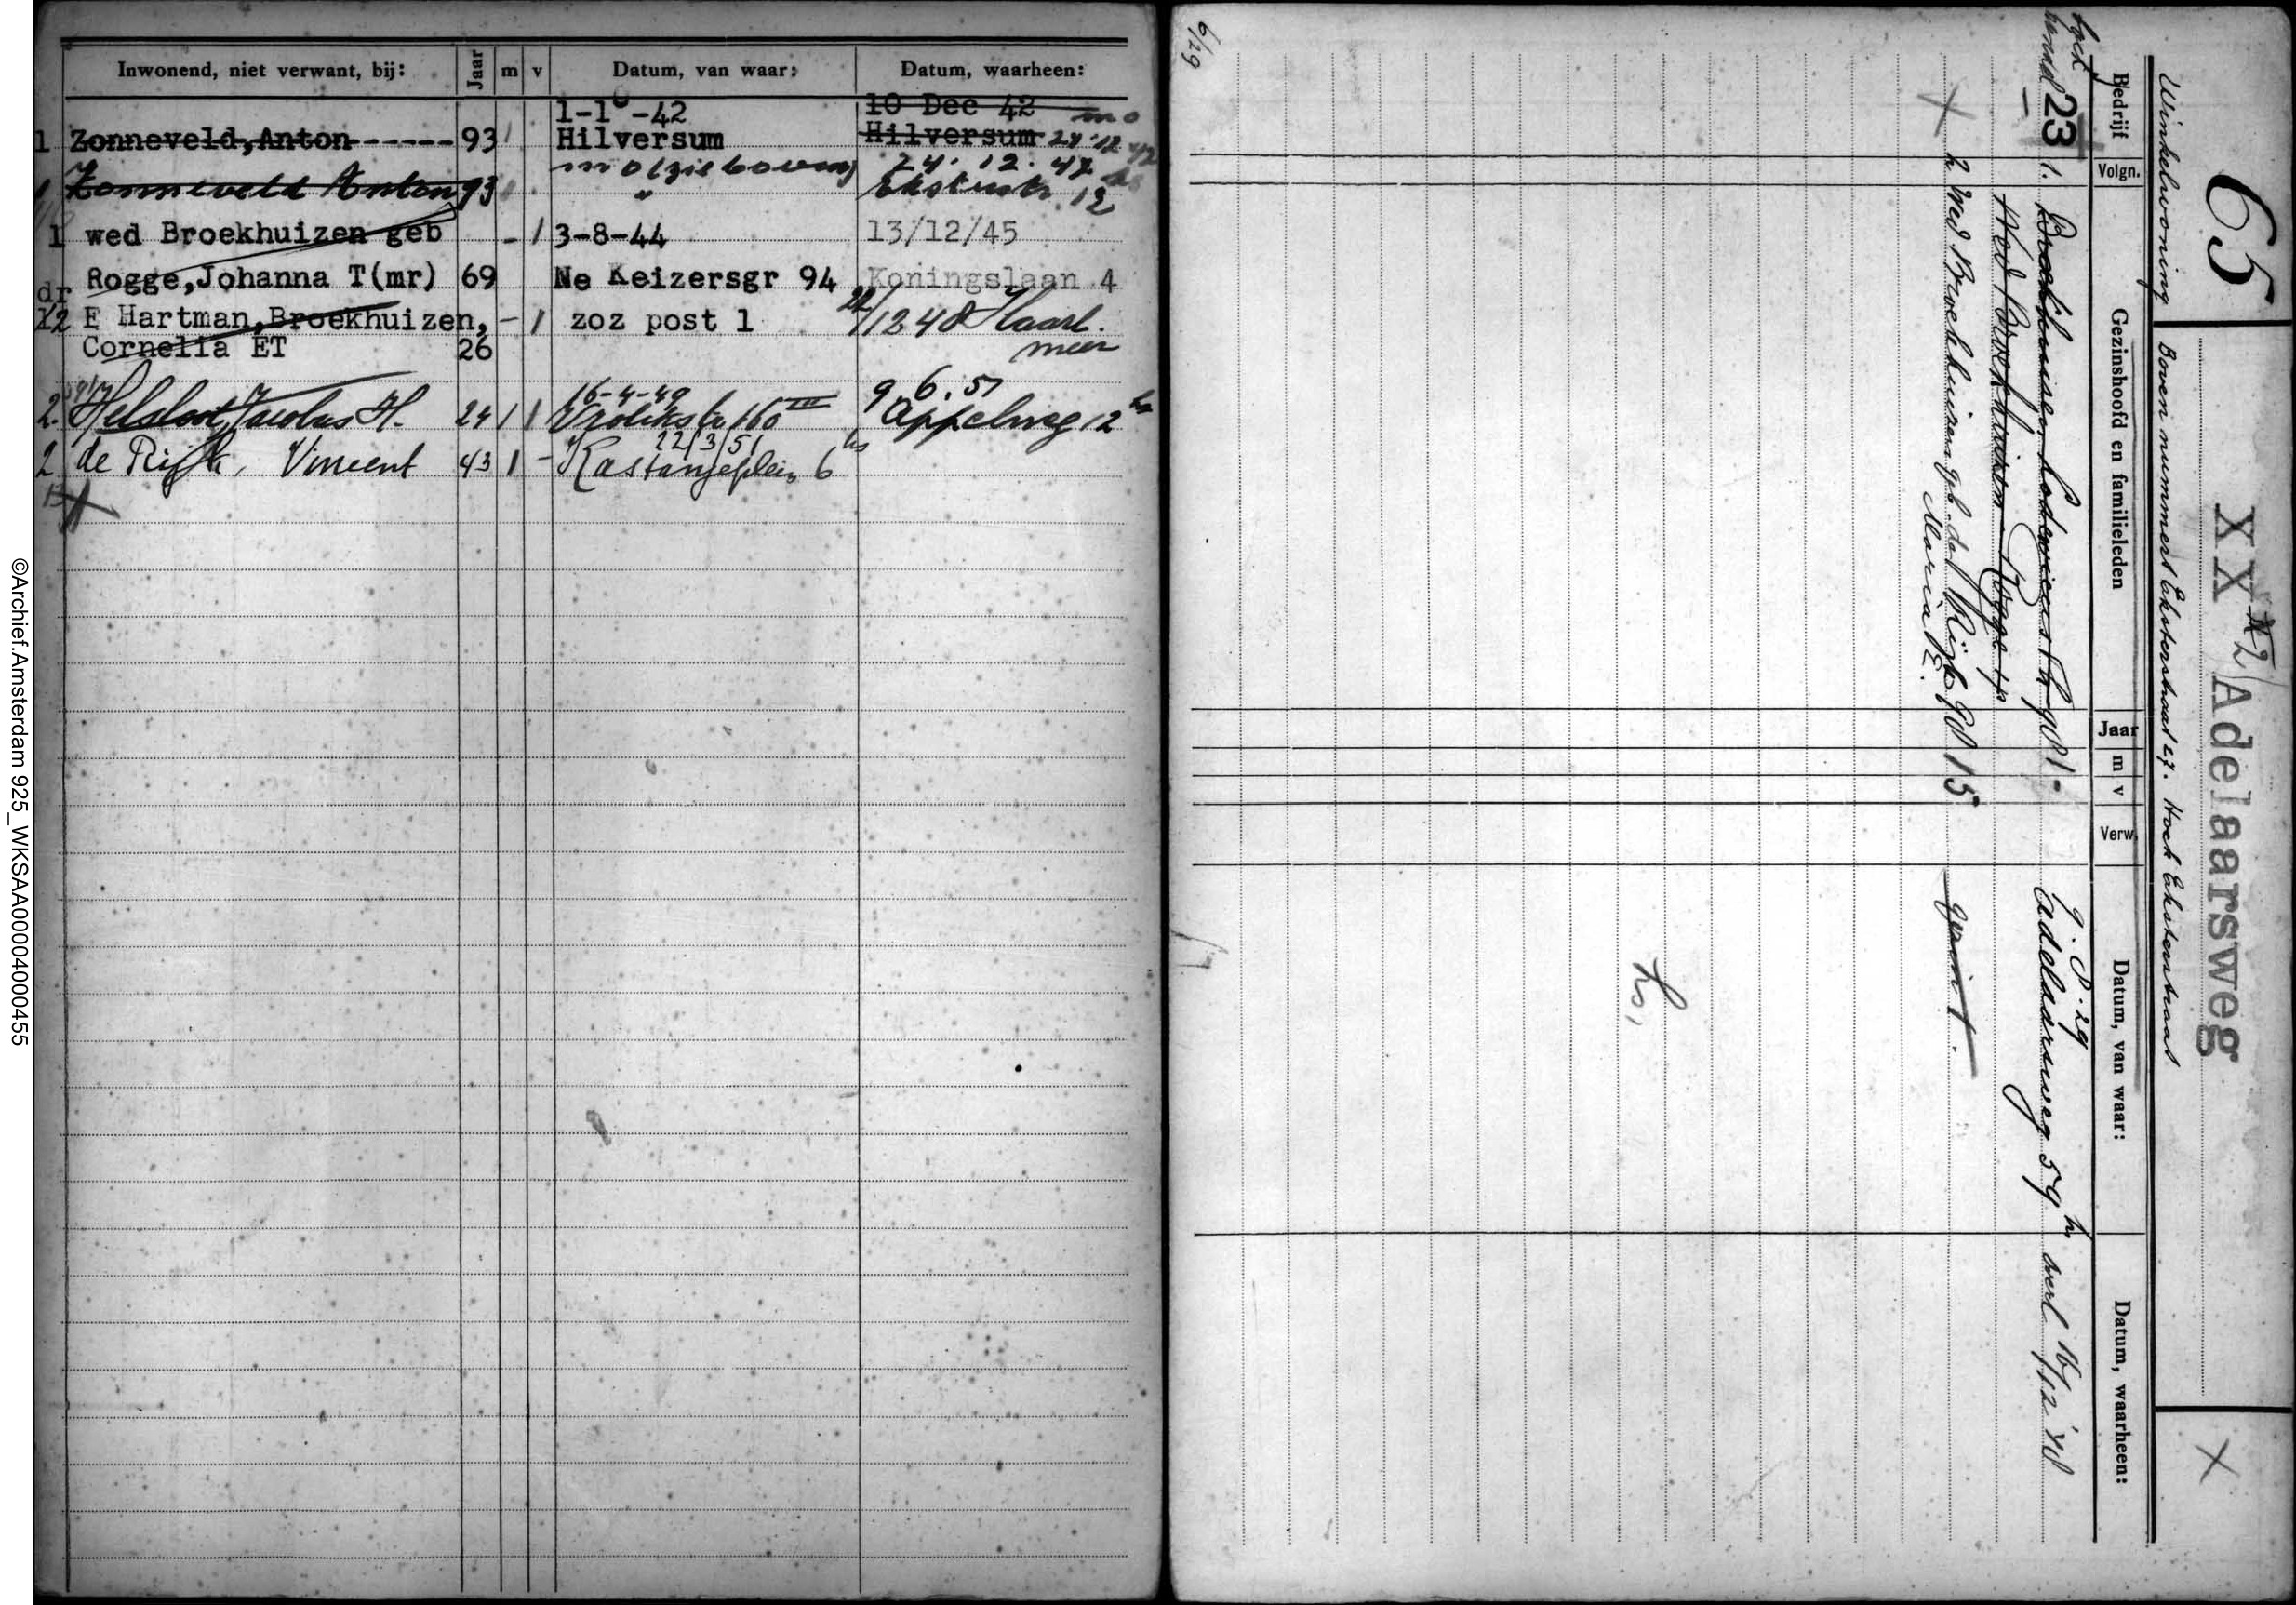 Inwonend, niet verwant, bij: Jaar m v Datum, van waar: Datum, waarheen:
1-1 -42 10 Dec 42
1 Zonneveld, Anton------ 93 Hilversum Hilversum 24.12
24.12.42
1 Zonneveld Anton 93 " Eksterstr. 12
1 wed Broekhuizen geb - 1 3-8-44 13/12/45
Rogge, Johanna T(mr) 69 Ne Keizersgr 94 Koningslaan 4
dr
12 E Hartman, Broekhuizen, - 1 zoz post 1 /12 48 Haarl.
Cornelia ET 26 meer
16-4-49 9.6.51
2. Helsloot, Jacobus H. 24 1 1 Vrolikstr 160 III Appelweg 12 hs
22/3/51
2 de Rijk, Vincent 43 1 - Kastanjeplein 6 hs
©Archief.Amsterdam 925_WKSAA00004000455
65 XX 2 Adelaarsweg X
Winkelwoning Boven nummers Eksterstraat 27. Hoek Eksterstraat
Bedrijf Volgn. Gezinshoofd en familieleden Jaar m v Verw. Datum, van waar: Datum, waarheen:
9.8.29
23 1. Broekhuizen 98 1 - Adelaarsweg 59 h overl 16/12 '48
Wed Broekhuizen - Rogge
2 Wed Broekhuizen geb. de Rijk 98 15 gezin 1.
Maria E.
hs,
6/29